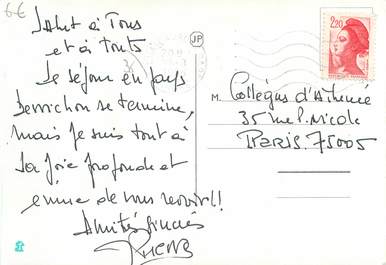 6€
Salut à Tous
et à touts
Le séjour en pays
Berrichon se termine,
mais je suis tout à
la joie profonde et
émue de vous revoir!!
Amitiés sincères
JP
2,20
M. Collègues d'Athénée
35 rue P. Nicole
PARIS. 75005